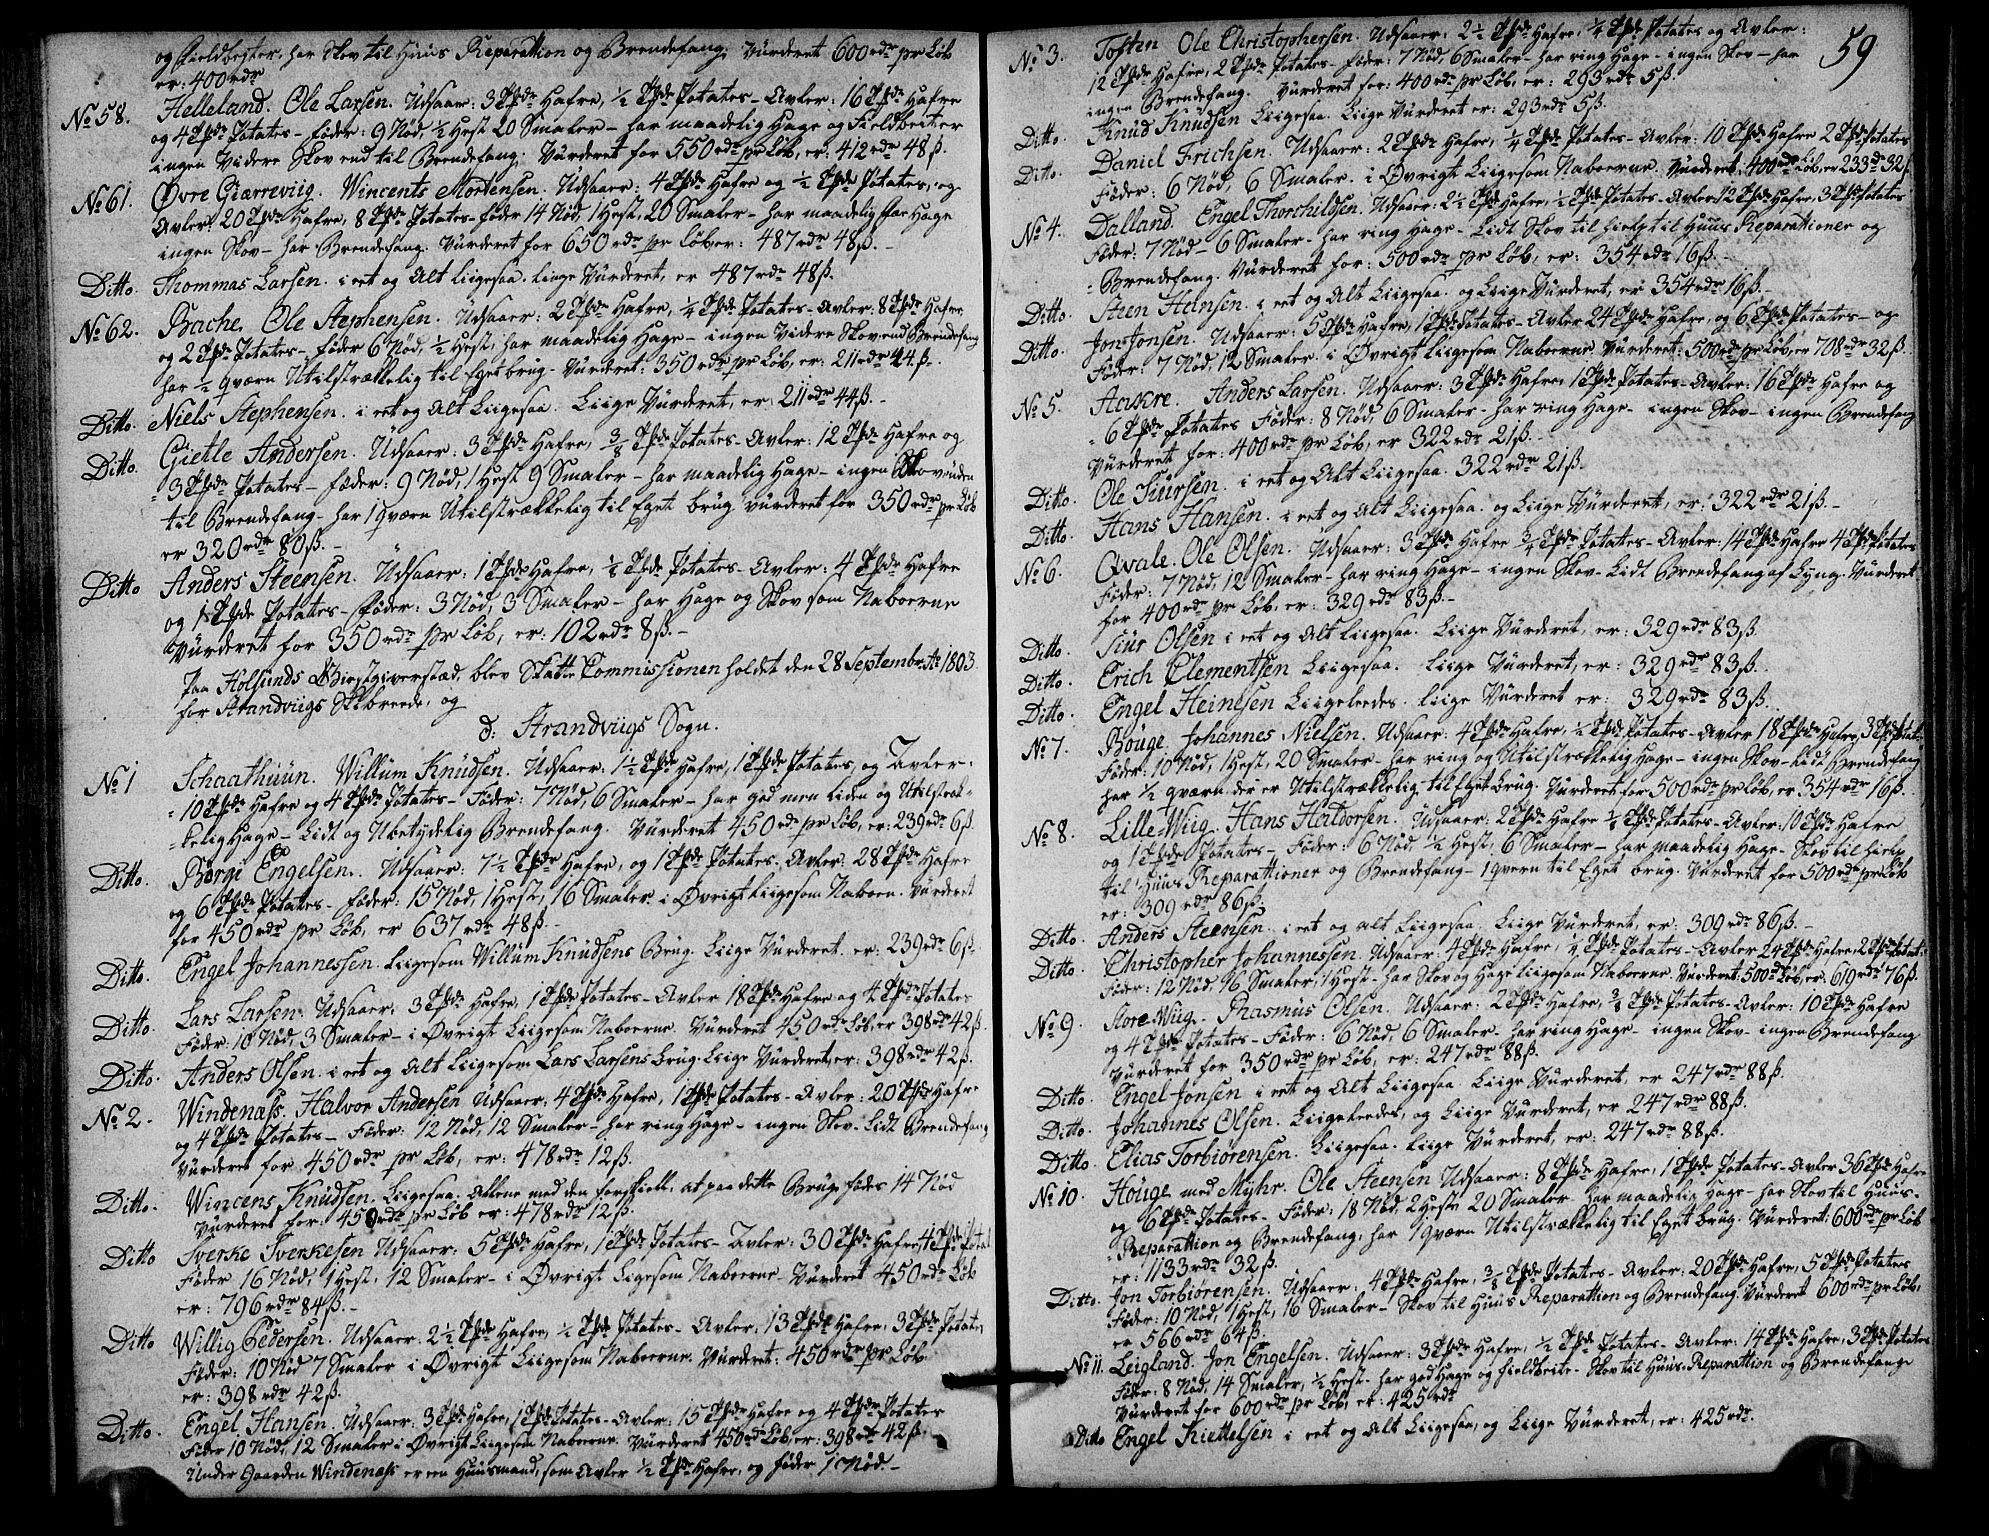 og fieldbester, har Skov til Huus Reparattion og Brendefang. Vurderet 600 rdr pr Løb
er: 400 rdr
No 58. Helleland. Ole Larsen. Udsaar: 3 Tdr Hafre, ½ Tde Potates - Avler: 16 Tdr Hafre
og 4 Tdr Potates - føder: 9 Nød, ½ Hest 20 Smaler - har maadelig Hage og Fieldbeiter
ingen Videre Skov end til Brendefang. Vurderet for 550 rdr pr Løb, er: 412 rdr 48 ß.
No 61. Øvre Giærreviig. Wincents Mortensen. Udsaar: 4 Tdr Hafre og ½ Tde Potates, og
Avler: 20 Tdr Hafre, 8 Tdr Potates - føder 14 Nød, 1 Hest, 20 Smaler - har maadelig Hage
ingen Skov - har Brendefang. Vurderet for 650 rdr pr Løb er: 487 rdr 48 ß. -
Ditto. Thommas Larsen. i eet og Alt Liigesaa. Liige Vurderet, er 487 rdr 48 ß.
No 62. Bache. Ole Stephensen. Udsaar: 2 Tdr Hafre, ¼ Tde Potates - Avler: 8 Tdr Hafre,
og 2 Tdr Potates - føder 6 Nød, ½ Hest, har maadelig Hage - ingen Videre Skov end Brendefang
har ½ qværn Utilstrækkelig til Eget brug - Vurderet: 350 rdr pr Løb, er: 211 rdr 44 ß. -
Ditto. Niels Stephensen. i eet og Alt Liigesaa. Liige Vurderet, er: 211 rdr 44 ß. -
Ditto. Gietle Andersen. Udsaar: 3 Tdr Hafre, 3/8 Tde Potates - Avler: 12 Tdr Hafre og
3 Tdr Potates - føder: 9 Nød, 1 Hest 9 Smaler - har maadelig Hage - ingen Skov uden
til Brendefang - har 1 qværn Utilstrækkelig til Eget brug vurderet for 350 rdr pr Løb
er 320 rdr 80 ß. -
Ditto Anders Steensen. Udsaar: 1 Tde Hafre, ⅛ Tde Potates - Avler: 4 Tdr Hafre
og 1 Tde Potates - føder: 3 Nød, 3 Smaler - har Hage og Skov som Naboerne
Vurderet for 350 rdr pr Løb, er: 102 rdr 8 ß. -
Paa Holsunds Giestgiverstæd, blev Skatte Commissionen holdet den 28 Septembr. Ao 1803
for Strandviigs Skibreede, og
d: Strandviigs Sogn.
No 1 Schaathuun. Willum Knudsen. Udsaar: 1½ Tde Hafre, 1 Tde Potates, og Avler:
10 Tdr Hafre og 4 Tdr Potates - føder: 7 Nød, 6 Smaler - har god men liden og Utilstræk-
kelig Hage - Lidt og Ubetydelig Brendefang. Vurderet 450 rdr pr Løb, er: 239 rdr 6 ß.
Ditto. Børni Engelsen. Udsaar: 7½ Tdr Hafre, og 1 Tde Potates. Avler: 28 Tdr Hafre
og 6 Tdr Potates - føder: 15 Nød, 1 Hest, 16 Smaler i Øvrigt Liigesom Naboen. Vurderet
for 450 rdr pr Løb, er 637 rdr 48 ß. -
Ditto. Engel Johannessen. Liigesom Willum Knudsens Brug. Liige Vurderet. er: 239 rdr 6 ß.
Ditto. Lars Larsen. Udsaar, 3 Tdr Hafre, 1 Tde Potates - Avler 18 Tdr Hafre og 4 Tdr Potates
føder: 10 Nød, 3 Smaler - i Øvrigt Liigesom Naboerne. Vurderet 450 rdr Løb, er 398 rdr 42 ß.
Ditto. Anders Olsen. i eet og Alt Liigesom Lars Larsens brug. Liige Vurderet, er: 398 rdr 42 ß.
No 2. Windenæss. Halvor Andersen Udsaar, 4 Tdr Hafre, 1 Tde Potates - Avler: 20 Tdr Hafre
og 4 Tdr Potates - føder: 12 Nød, 12 Smaler - har ring Hage - ingen Skov. Lidt Brendefang
Vurderet for 450 rdr pr Løb, er: 478 rdr 12 ß.
Ditto. Wincens Knudsen. Liigesaa. Allene med den forskiell, at paa dette Brug fødes 14 Nød
Vurderet for: 450 rdr pr Løb er: 478 rdr 12 ß.
Ditto Sverke Sverkesen Udsaar: 5 Tdr Hafre, 1 Tde Potates - Avler: 30 Tdr Hafre, 4 Tdr Potat
føder 16 Nød, 1 Hest, 12 Smaler - i Øvrigt Ligesom Naboerne - Vurderet 450 rdr Løb
er: 796 rdr 84 ß. -
Ditto Willig Pedersen. Udsaar: 2½ Tdr Hafre, ½ Tde Potates - Avler, 13 Tdr Hafre, 3 Tdr Potates
føder: 10 Nød 7 Smaler i Øvrigt Liigesom Naboerne. Vurderet: 450 rdr pr Løb
er: 398 rdr 42 ß.
Ditto. Engel Hansen. Udsaar: 3 Tdr Hafre, 1 Tde Potates - Avler: 15 Tdr Hafre og 4 Tdr Potates
føder 10 Nød, 12 Smaler i Øvrigt Liigesom Naboerne. Vurderet 450 rdr Løb, er: 398 rdr 42 ß.
Under Gaarden Windenæss er een Huusmand, som Avler ½ Tde Hafre, og føder 1 Nød. -
59
No 3. Toften Ole Christophersen. Udsaar: 2½ Tdr Hafre, ¼ Tde Potates og Avler:
12 Tdr Hafre, 2 Tdr Potates - føder: 7 Nød, 6 Smaler - har ring Hage - ingen Skov - har
ingen Brendefang. Vurderet for: 400 rdr pr Løb, er: 293 rdr 5 ß.
Ditto. Knud Knudsen Liigesaa. Liige Vurderet er: 293 rdr 5 ß.
Ditto. Daniel Frichsen. Udsaar: 2 Tdr Hafre, ¼ Tde Potates - Avler: 10 Tdr Hafre 2 Tdr Potates
føder: 6 Nød, 6 Smaler. i Øvrigt Liigesom Naboerne. Vurderet: 400 rdr Løb, er 233 rdr 32 ß
No 4. Dalland. Engel Thorchildsen. Udsaar: 2½ Tdr Hafre, ½ Tde Potates - Avler: 12 Tdr Hafre, 3 Tdr Potates
føder: 7 Nød - 6 Smaler - har ring Hage - Lidt Skov til hielp til Huus Reparattioner og
Brendefang. Vurderet for: 500 rdr pr Løb, er: 354 rdr 16 ß. -
Ditto. Steen Hansen. i eet og Alt Liigesaa. og Liige Vurderet, er 354 rdr 16 ß. -
Ditto. Jon Jonsen. Udsaar: 5 Tdr Hafre, 1 Tde Potates - Avler 24 Tdr Hafre, og 6 Tdr Potates - og
føder: 7 Nød, 12 Smaler. i Øvrigt Liigesom Naboerne. Vurderet: 500 rdr pr Løb, er 708 rdr 32 ß.
No 5. Aakre. Anders Larsen. Udsaar: 3 Tdr Hafre, 1 Tde Potates - Avler: 16 Tdr Hafre og
6 Tdr Potates føder: 8 Nød, 6 Smaler - har ring Hage - ingen Skov - ingen Brendefang
Vurderet for: 400 rdr pr Løb, er 322 rdr 21 ß. -
Ditto. Ole Siursen. i eet og Alt Liigesaa. 322 rdr 21 ß.
Ditto. Hans Hansen. i eet og Alt Liigesaa. og Liige Vurderet, er: 322 rdr 21 ß. -
No 6. Qvale. Ole Olsen. Udsaar: 3 Tdr Hafre ¾ Tde Potates - Avler: 14 Tdr Hafre 4 Tdr Potates
føder: 7 Nød, 12 Smaler - har ring Hage - ingen Skov - Lidt Brendefang af Lyng. Vurderet
for 400 rdr pr Løb, er: 329 rdr 83 ß. -
Ditto. Siur Olsen i eet og Alt Liigesaa. Liige Vurderet, er: 329 rdr 83 ß.
Ditto. Erich Clementsen Liigesaa. Liige Vurderet, er: 329 rdr 83 ß.
Ditto. Engel Heinesen Liigeleedes. Liige Vurderet er: 329 rdr 83 ß.
No 7. Bouge. Johannes Nielsen. Udsaar: 4 Tdr Hafre, ½ Tde Potates - Avler 18 Tdr Hafre, 3 Tdr Potat:
føder: 10 Nød, 1 Hest, 20 Smaler - har ring og Utilstrækkelig Hage - ingen Skov - Lidt Brendefang
har ½ qværn der er Utilstrækkelig til Eget brug. Vurderet for 500 rdr pr Løb, er 354 rdr 16 ß.
No 8. Lille-Wiig. Hans Haldorsen. Udsaar: 2 Tdr Hafre ⅛ Tde Potates - Avler: 10 Tdr Hafre
og 1 Tde Potates - føder: 6 Nød ½ Hest, 6 Smaler - har maadelig Hage - Skov til hielp
til Huus Reparattioner og Brendefang - 1 qværn til Eget brug. Vurderet for 500 rdr pr Løb
er: 309 rdr 86 ß.
Ditto. Anders Steensen. i eet og alt Liigesaa. Liige Vurderet, er: 309 rdr 86 ß. -
Ditto. Christopher Johannessen. Udsaar: 4 Tdr Hafre, ¼ Tde Potates - Avler 24 Tdr Hafre, 2 Tdr Potat:
føder: 12 Nød, 16 Smaler, 1 Hest - har Skov og Hage Liigesom Naboerne. Vurderet: 500 rdr Løb, er: 619 rdr 76 ß.
No 9. Store-Wiig. Rasmus Olsen. Udsaar: 2 Tdr Hafre, ¾ Tde Potates - Avler: 10 Tdr Hafre
og 4 Tdr Potates - føder: 6 Nød, 6 Smaler - har ring Hage - ingen Skov - ingen Brendefang
Vurderet for 350 rdr pr Løb, er: 247 rdr 88 ß.
Ditto. Engel Jonsen i eet og Alt Liigesaa. Liige Vurderet, er 247 rdr 88 ß.
Ditto. Johannes Olsen. Liigeleedes, og Liige Vurderet, er 247 rdr 88 ß.
Ditto. Elias Torbiørensen. Liigesaa. Liige Vurderet, er: 247 rdr 88 ß.
No 10. Houge med Myhr. Ole Steensen Udsaar: 8 Tdr Hafre, 1 Tde Potates - Avler 36 Tdr Hafre
og 6 Tdr Potates - føder: 18 Nød, 2 Heste 20 Smaler - har maadelig Hage - har Skov til Huus-
Reparattion og Brendefang, har 1 qværn Utilstrækkelig til Eget brug. Vurderet: 600 rdr pr Løb
er: 1133 rdr 32 ß.
Ditto. Jon Torbiørensen. Udsaar: 4 Tdr Hafre, 3/8 Tde Potates - Avler: 20 Tdr Hafre, 5 Tdr Potates
føder: 10 Nød, 1 Hest, 16 Smaler - Skov til Huus Reparattion og Brendefang. Vurderet 600 rdr pr Løb,
er 566 rdr 64 ß.
No 11. Leigland. Jon Engelsen. Udsaar: 3 Tdr Hafre, ½ Tde Potates - Avler: 14 Tdr Hafre, 3 Tdr Potates
føder: 8 Nød, 14 Smaler, ½ Hest - har god Hage og fieldbeite - Skov til Huus-Reparattion og Brendefang
Vurderet for 600 rdr pr Løb, er: 425 rdr
Ditto Engel Kiettelsen i eet og Alt Liigesaa, og Liige Vurderet, er: 425 rdr.